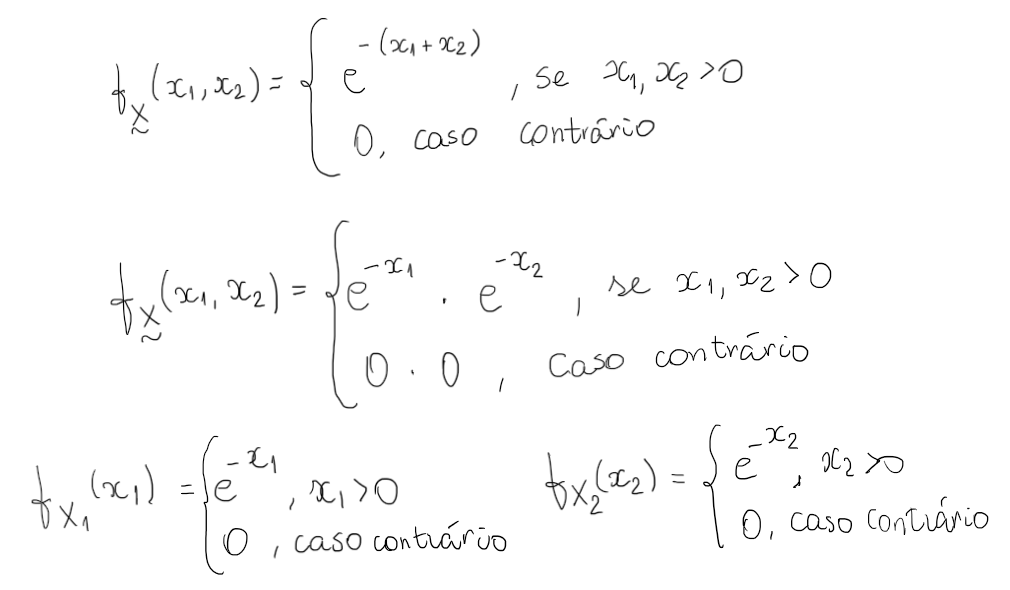 f_X̰(x₁, x₂) = { e^{-(x₁+x₂)} , se x₁, x₂ > 0
0, caso contrário
f_X̰(x₁, x₂) = { e^{-x₁} . e^{-x₂} , se x₁, x₂ > 0
0 . 0 , caso contrário
f_{X₁}(x₁) = { e^{-x₁} , x₁ > 0
0 , caso contrário
f_{X₂}(x₂) = { e^{-x₂} , x₂ > 0
0, caso contrário